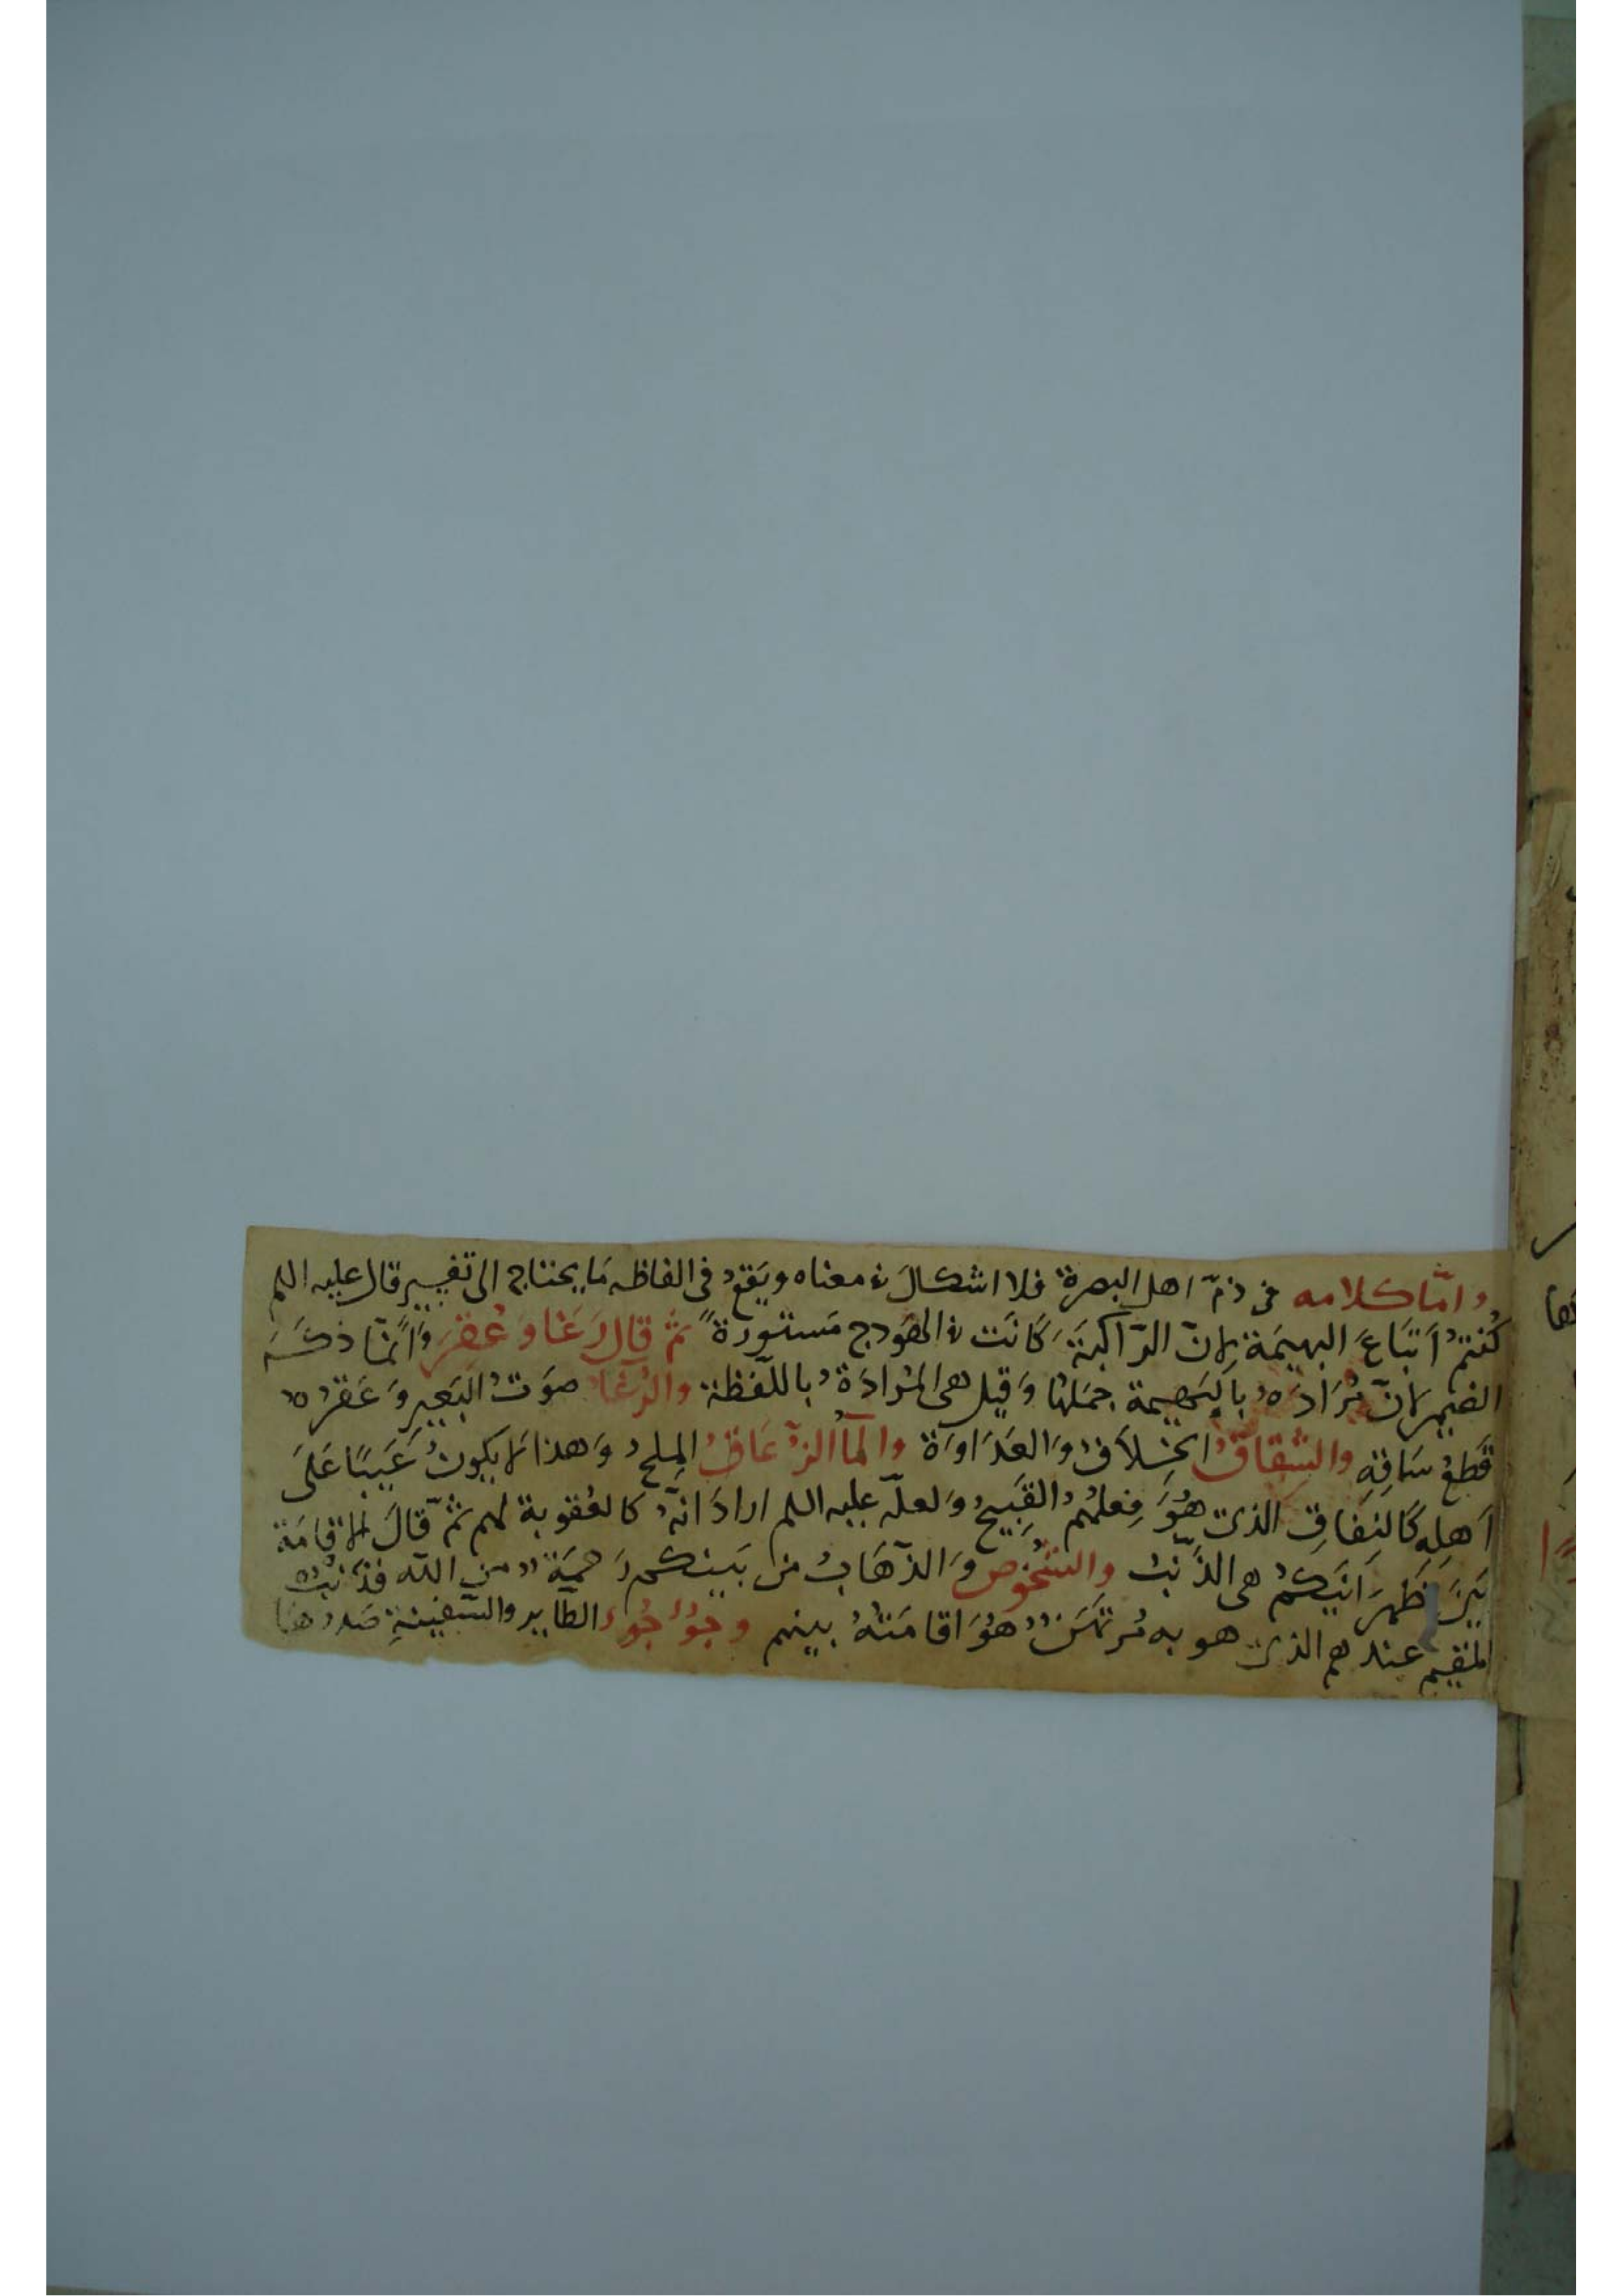 وامّا كلامه فى ذمّ اهل البصرة فلا اشكالَ فى معناه ويَقعُ فى الفاظه مَا يحتاج الى تفسير قال عليه السلم
كُنتمُ اَتبَاعَ البهيمَة لِانّ الرّاكبَةَ كَانَت فى الهَودج مَستورَةً ثمّ قال رَغَا وَعُقِرَ وَانّمَا ذكّرَ
الضمير لانّ مُرَادَهُ بالبَهيمة جمَلهُا وَقيل هى المُرادَةُ باللّفَظة والرُّغَا صَوتُ البَعيرِ وَعَقرُهُ
قَطعُ سَاقِهِ والشقاقُ الخِلاَفُ وَالعَدَاوَة والمآ الزُّعَاقُ المِلحُ وَهذا لا يكونُ عَيبًا عَلَى
اَهلِه كَالنِفَاقِ الذى هُوَ فِعلُهُم القَبِيحُ وَلعلّه عليه السلم ارادَ انّهُ كالعُقوبة لهم ثمّ قالَ الاقامَة
بَينَ ظَهرَانَيكُم هى الذّنبُ والشّخُوص وَالذّهَابُ من بَينكم رَحمَةٌ من الله فذَنبُ
المقيم عندهم الذى هو به مُرتَهَنٌ هُوَ اقامَتُهُ بينهم وجُؤجُؤُ الطّاير والسّفِينةِ صَدرُهَا